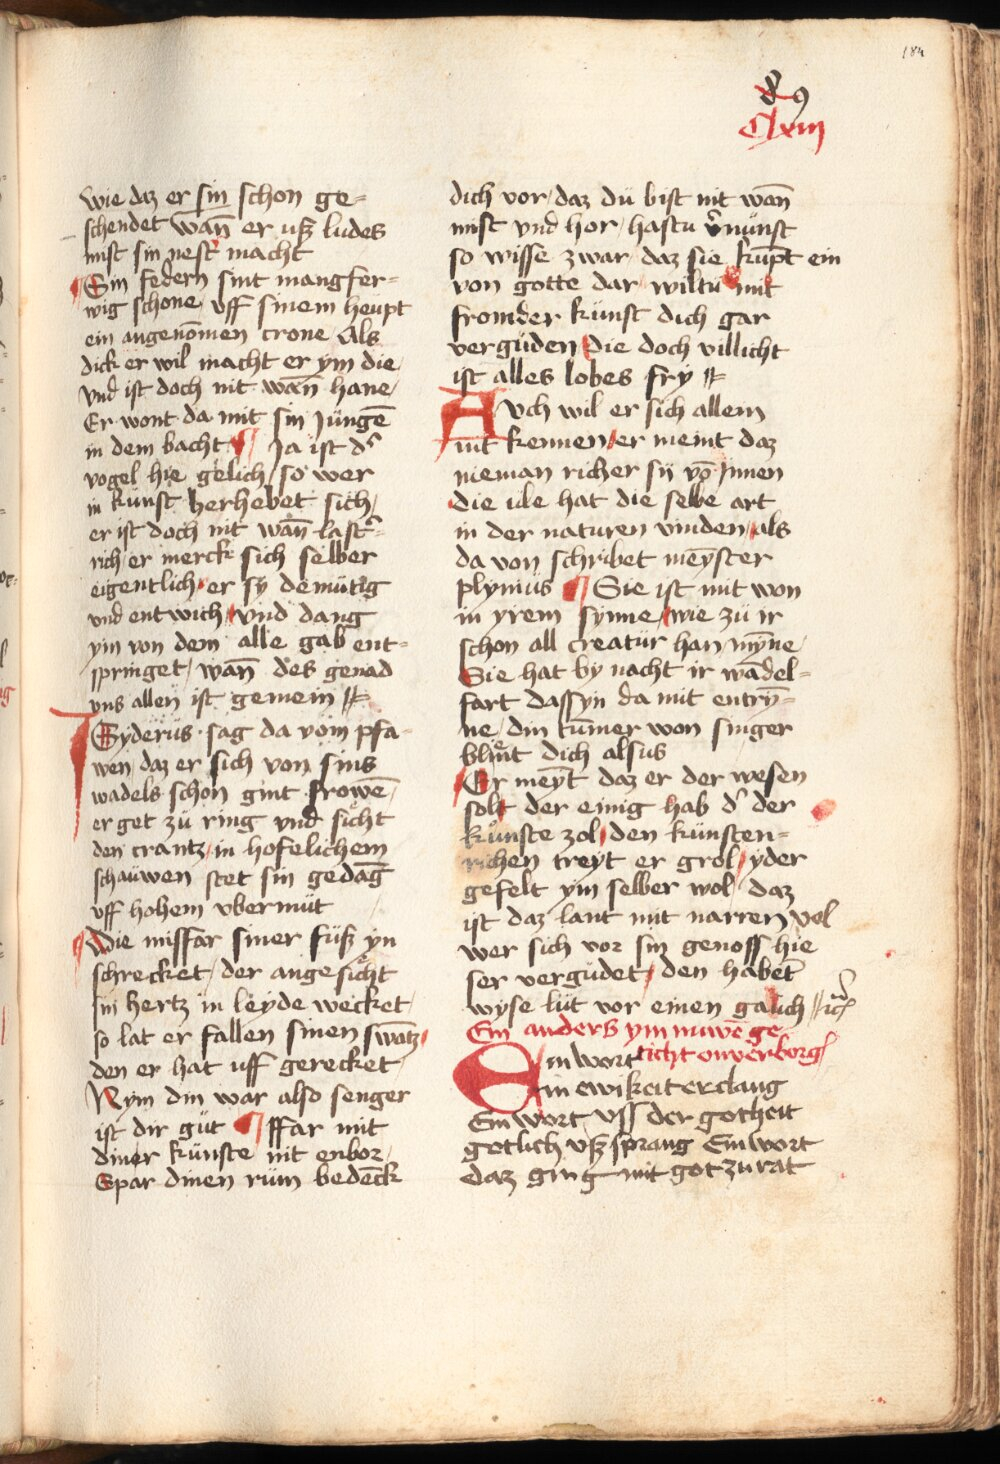 184
89
Clxiij
wie daz er sin schon ge=
schendet wañ er uß ludes
mist sin nest macht
Sin federn sint mangfer=
wig schone / uff sinem heupt
ein angenomen crone Als
dick er wil macht er ym die /
vnd ist doch nit wañ hane /
Er wont da mit sin Jungē
in dem bacht Ja ist d'
vogel hie gelich / so wer
in kunst herhebet sich /
er ist doch nit wañ last'=
rich / er merck sich selber
eigentlich er sy demütig
vnd entwich / vnd dang
ym von dem alle gab ent=
springet / wañ des genad
vns allen ist gemein
JSyderüs sag da vom pfa=
wen / daz er sich von sins
wadels schon gint frowē /
er get zü ring vnd sicht
den crantz / in hofelichem
schauwen stet sin gedāg
vff hohem vbermüt
Die missfar siner füß yn
schrecket / der angesicht
sin hertz in leyde wecket /
so lat er fallen sinen swātz /
den er hat uff gerecket /
Nym din war also senger
ist dir güt ffar mit
diner künste nit enbor /
Spar dinen rüm bedēck
dich vor / daz dü bist nit wañ
mist vnd hor / hastu v'nünft
so wisse zwar daz sie kūpt ein
von gotte dar / wiltu mit
fromder künst dich gar
vergüden / die doch villicht
ist alles lobes fry
AVch wil er sich allein
nit kennen / er meint daz
nieman richer sy vō Jnnen
die ule hat die selbe art
in der naturen vinden / als
da von schribet meyster
plynius Sie ist mit won
in yrem synne / wie zü ir
schon all creatür han mȳne /
Sie hat by nacht ir wādel=
fart dassyn da mit entrȳ=
ne / din tūmer won singer
blint dich alsus
Er meȳt daz er der wesen
solt der einig hab d' der
künste zol / den künsten=
richen treyt er grol / yder
gefelt ym selber wol / daz
ist daz lant mit narren vol
wer sich vor sin genoss hie
ser vergüdet / den habet
wyse lüt vor einen gauch
Ein anders ym nuwē ge
ticht on verborg
Ein wort
in ewikeit erclang
Ein wort vss der gotheit
gotlich vß sprang Ein wort
daz ging mit got zu rat